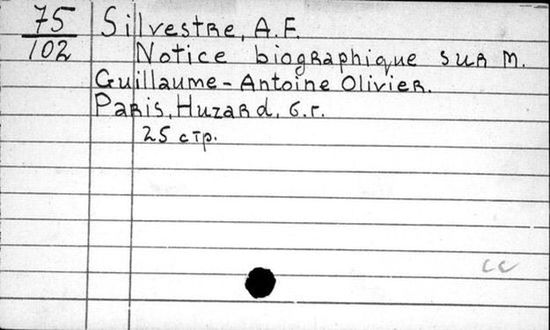 75
102
Silvestre, A. F.
Notice biographique sur M.
Guillaume-Antoine Olivier.
Paris, Huzard, б. г.
25 стр.
cc